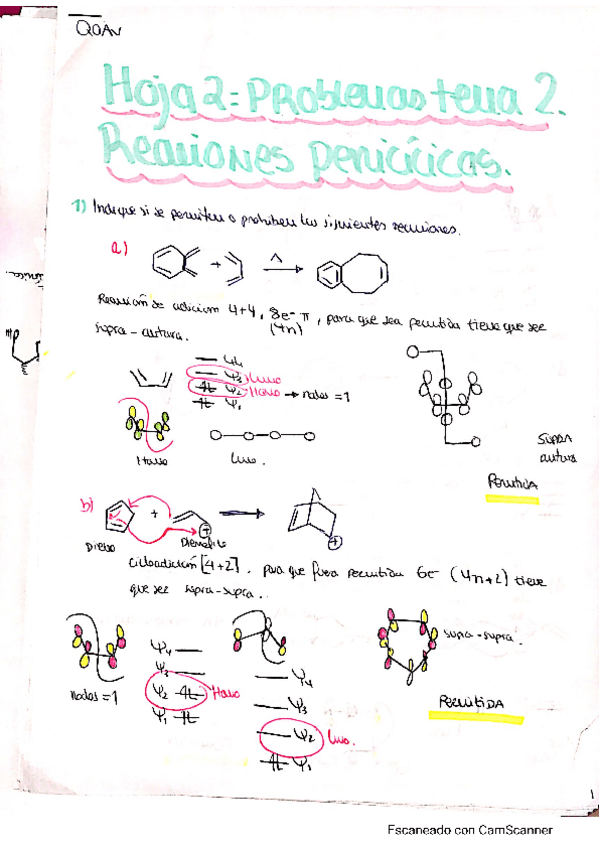 QOAV
Hoja 2: Problemas tema 2.
Reacciones pericíclicas.
1) Indique si se permiten o prohíben las siguientes reacciones.
a)
+ Δ
Reacción de adición 4+4, 8e- π, para que sea permitida tiene que ser
(4n)
supra-antura.
Ψ4
Ψ3 Lumo
Ψ2 Homo → nodos = 1
Ψ1
Homo
Lumo.
supra
antura
Permitida
b)
+
+
+
Dieno
Dienófilo
cicloadición [4+2], para que fuera permitida 6e- (4n+2) tiene
que ser supra-supra.
nodos = 1
Ψ4
Ψ3
Ψ2 Homo
Ψ1
Ψ4
Ψ3
Ψ2 Lumo.
Ψ1
supra-supra.
PERMITIDA
1
Escaneado con CamScanner